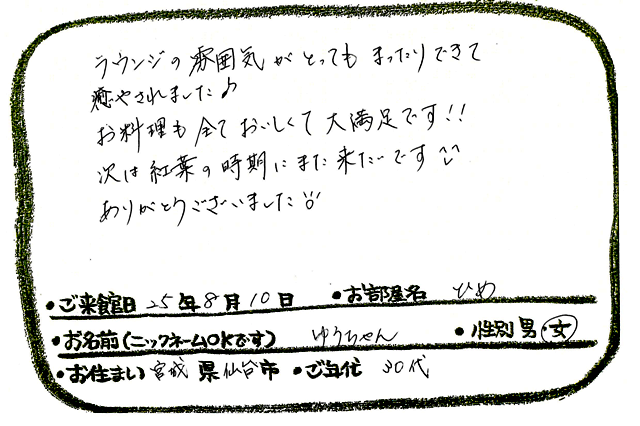 ラウンジの雰囲気がとってもまったりできて
癒やされました♪
お料理も全ておいしくて大満足です!!
次は紅葉の時期にまた来たいです
ありがとうございました
・ご来館日 25年8月10日 ・お部屋名 ひめ
・お名前(ニックネームOKです) ゆうちゃん ・性別 男・女
・お住まい 宮城県仙台市 ・ご年代 30代